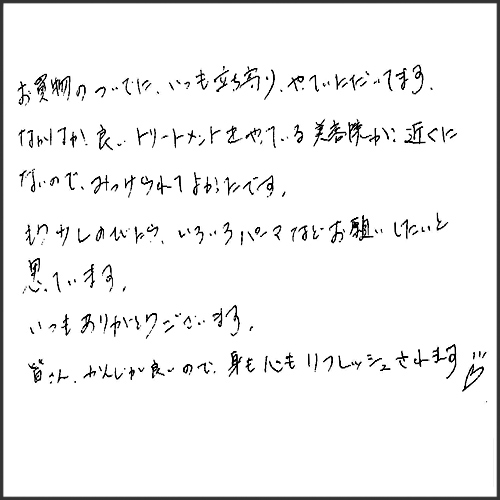 お買物のついでに、いつも立ち寄り、やっていただいてます。
なかなか良いトリートメントをやっている美容院が近くに
ないので、みつけられてよかったです。
もう少しのびたら、いろいろパーマなどお願いしたいと
思っています。
いつもありがとうございます。
皆さん、かんじが良いので、身も心もリフレッシュされます